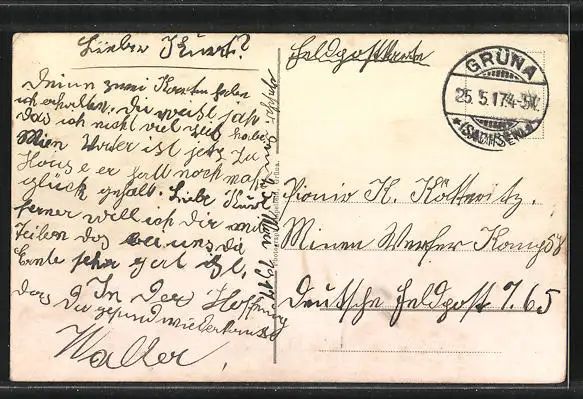 Lieber Kurt?
Deine zwei Karten habe
ich erhalten. Du weist ja
das ich nicht viel Zeit habe
Mein Vater ist jetz zu
Hause er hatt noch mal
glück gehabt. Liebe Kurt
ferner will ich dir mit
teilen das bei uns die
Ernte sehr gut ist,
In der Hoffnung
das Du gesund wiederkomst
Walter,
den Mai 1917
Feldpostkarte
GRÜNA
25.5.17.4-5N.
*(SACHSEN)*
Pionir K. Kötteritz.
Minen Werfer Komp 58
Deutsche Feldpost 765